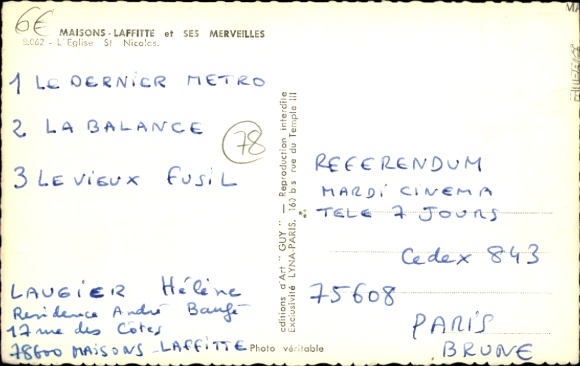 6€
MAISONS-LAFFITTE et SES MERVEILLES
8.062 - L'Eglise St Nicolas.
1 LE DERNIER METRO
2 LA BALANCE
78
3 LE VIEUX FUSIL
LAUGIER Hélène
Residence André Baugé
17 rue des Côtes
78600 MAISONS-LAFFITTE
Photo véritable
Editions d'Art "GUY" — Reproduction interdite
Exclusivité LYNA-PARIS, 160 bis rue du Temple III
REFERENDUM
MARDI CINEMA
TELE 7 JOURS
Cedex 843
75608
PARIS
BRUNE